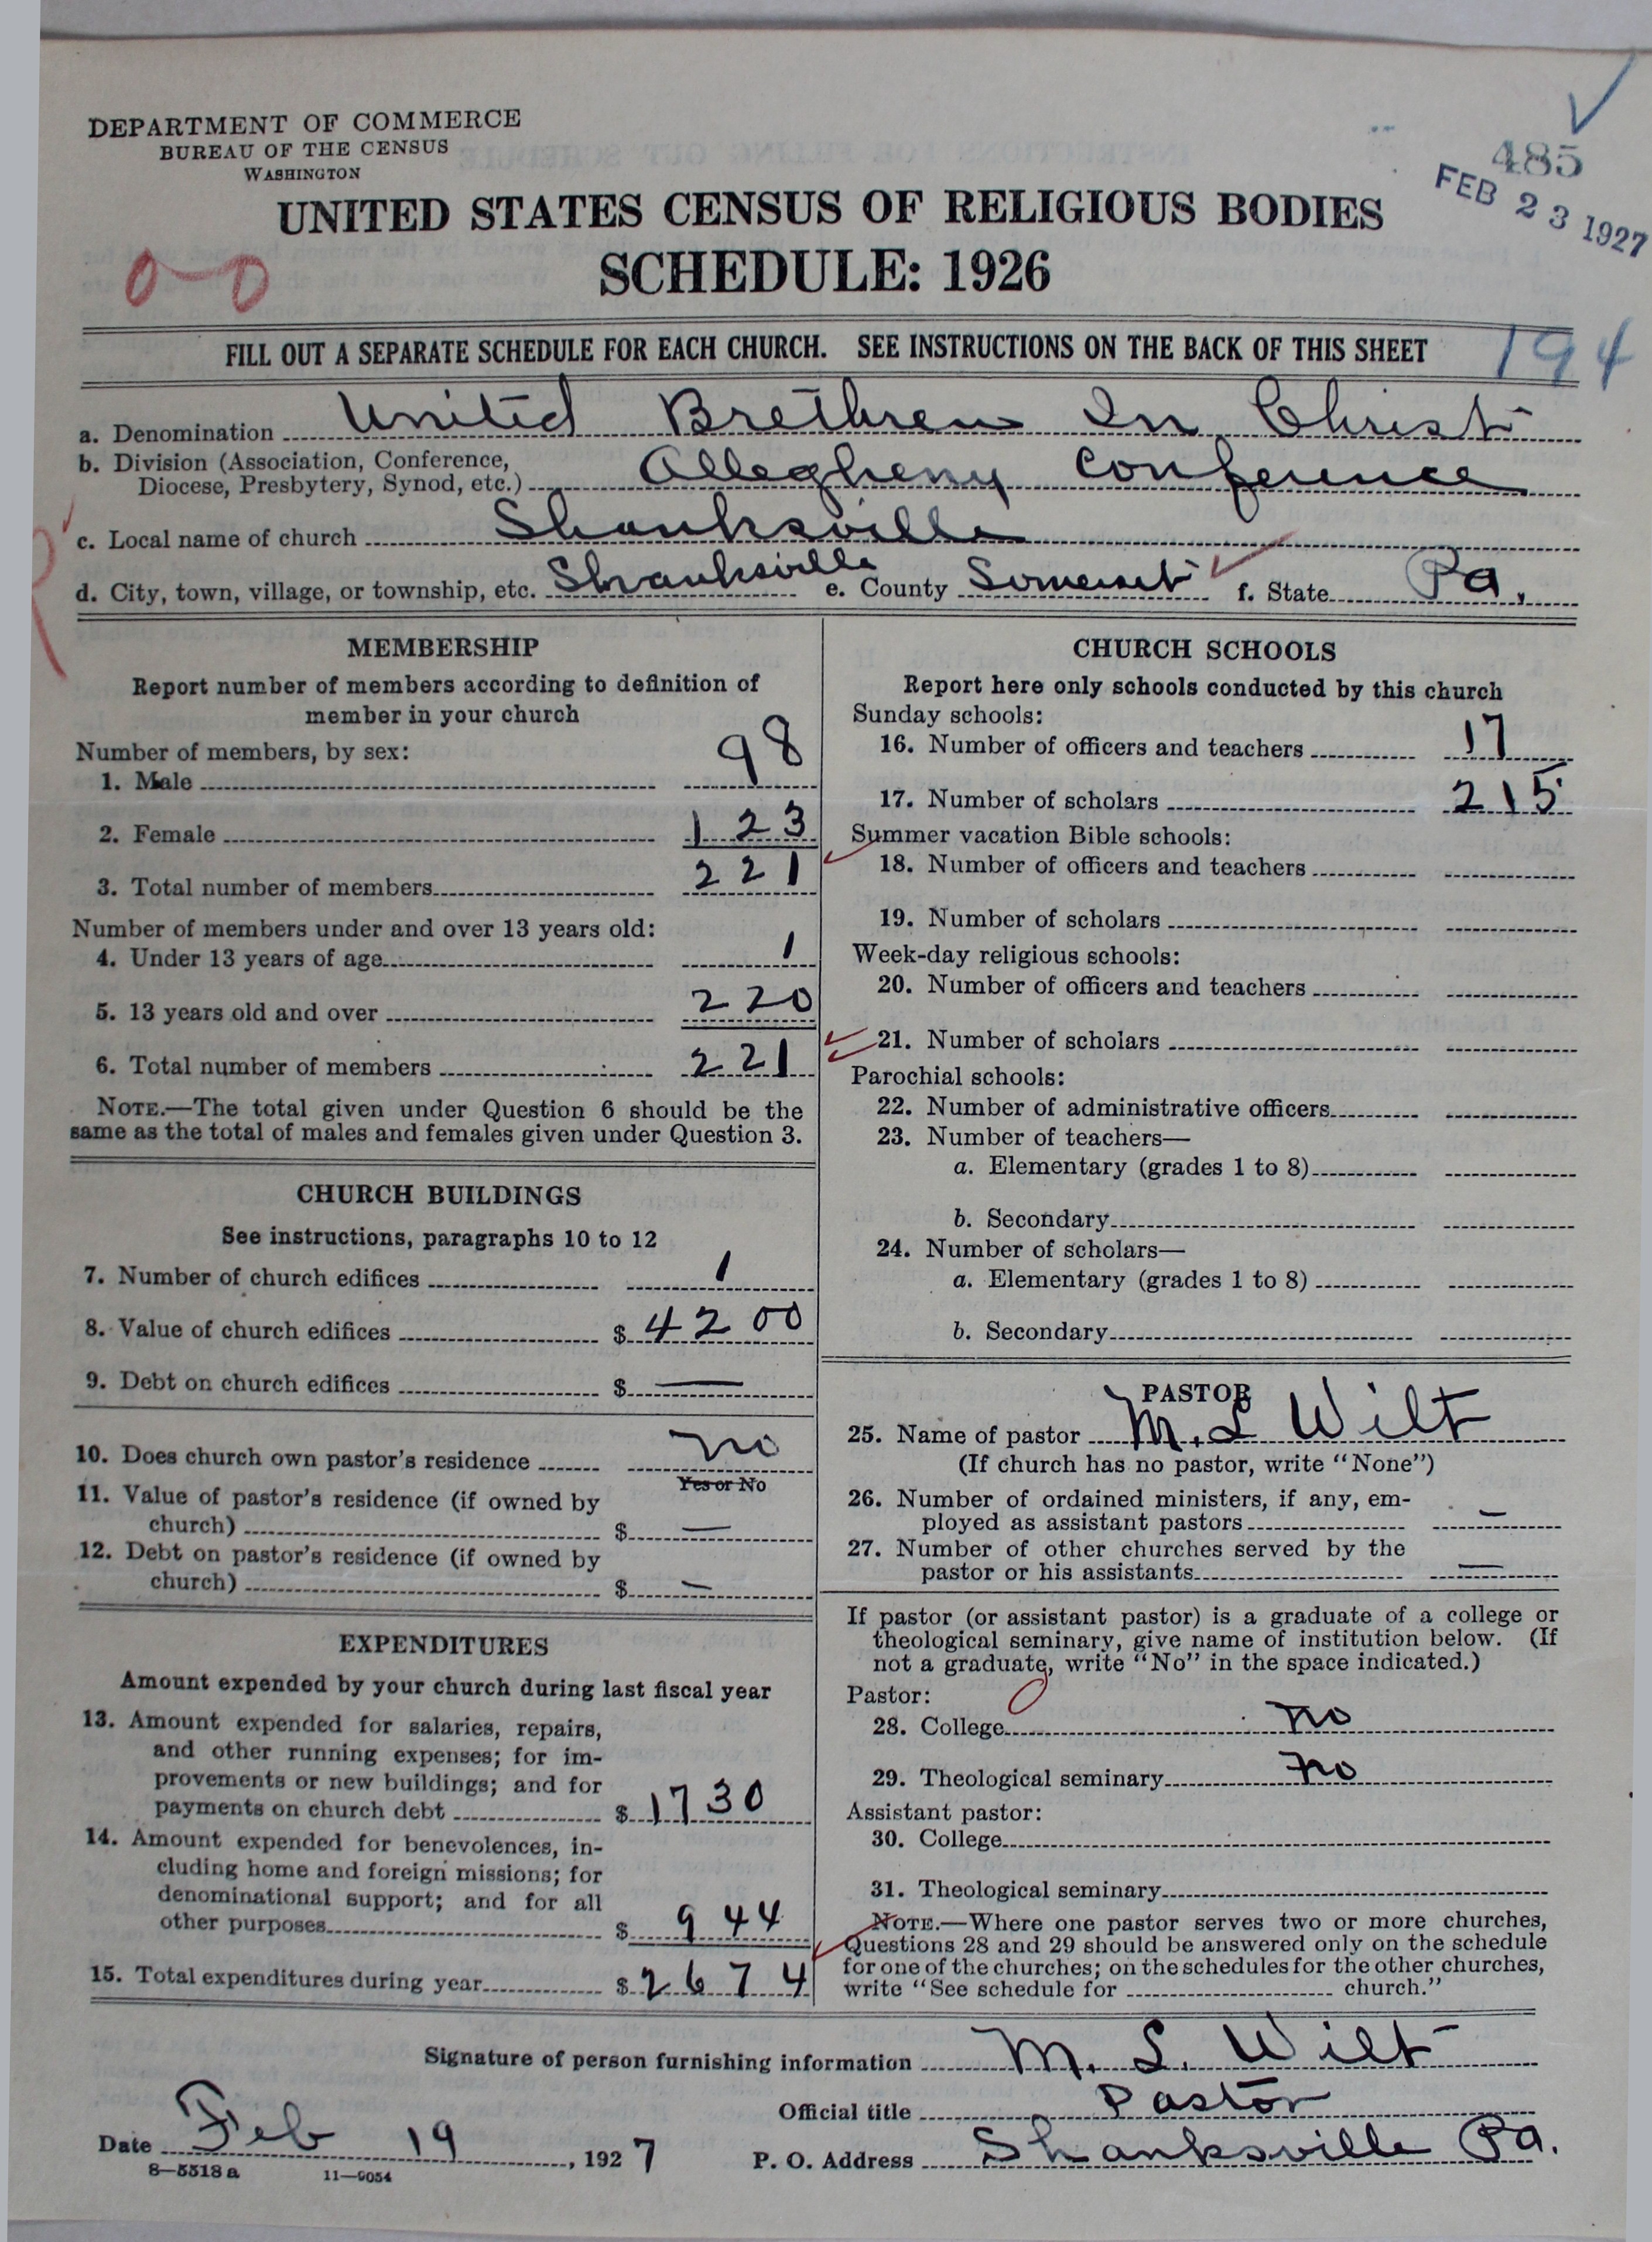 DEPARTMENT OF COMMERCE
BUREAU OF THE CENSUS
WASHINGTON
485
FEB 23 1927
UNITED STATES CENSUS OF RELIGIOUS BODIES
SCHEDULE: 1926
0-0
FILL OUT A SEPARATE SCHEDULE FOR EACH CHURCH. SEE INSTRUCTIONS ON THE BACK OF THIS SHEET
194
a. Denomination United Brethren In Christ
b. Division (Association, Conference,
Diocese, Presbytery, Synod, etc.) Allegheny Conference
c. Local name of church Shanksville
d. City, town, village, or township, etc. Shanksville e. County Somerset f. State Pa.
MEMBERSHIP
Report number of members according to definition of
member in your church
Number of members, by sex:
1. Male 98
2. Female 123
3. Total number of members 221
Number of members under and over 13 years old:
4. Under 13 years of age 1
5. 13 years old and over 220
6. Total number of members 221
NOTE.—The total given under Question 6 should be the
same as the total of males and females given under Question 3.
CHURCH BUILDINGS
See instructions, paragraphs 10 to 12
7. Number of church edifices 1
8. Value of church edifices $ 4200
9. Debt on church edifices $ —
10. Does church own pastor's residence no
Yes or No
11. Value of pastor's residence (if owned by
church) $ —
12. Debt on pastor's residence (if owned by
church) $ —
EXPENDITURES
Amount expended by your church during last fiscal year
13. Amount expended for salaries, repairs,
and other running expenses; for im-
provements or new buildings; and for
payments on church debt $ 1730
14. Amount expended for benevolences, in-
cluding home and foreign missions; for
denominational support; and for all
other purposes $ 944
15. Total expenditures during year $ 2674
CHURCH SCHOOLS
Report here only schools conducted by this church
Sunday schools:
16. Number of officers and teachers 17
17. Number of scholars 215
Summer vacation Bible schools:
18. Number of officers and teachers
19. Number of scholars
Week-day religious schools:
20. Number of officers and teachers
21. Number of scholars
Parochial schools:
22. Number of administrative officers
23. Number of teachers—
a. Elementary (grades 1 to 8)
b. Secondary
24. Number of scholars—
a. Elementary (grades 1 to 8)
b. Secondary
PASTOR
25. Name of pastor M. L Wilt
(If church has no pastor, write "None")
26. Number of ordained ministers, if any, em-
ployed as assistant pastors —
27. Number of other churches served by the
pastor or his assistants —
If pastor (or assistant pastor) is a graduate of a college or
theological seminary, give name of institution below. (If
not a graduate, write "No" in the space indicated.)
Pastor:
28. College no
29. Theological seminary no
Assistant pastor:
30. College
31. Theological seminary
NOTE.—Where one pastor serves two or more churches,
Questions 28 and 29 should be answered only on the schedule
for one of the churches; on the schedules for the other churches,
write "See schedule for church."
Signature of person furnishing information M. L. Wilt
Official title Pastor
Date Feb 19, 1927 P. O. Address Shanksville Pa.
8—5518 a 11—9054